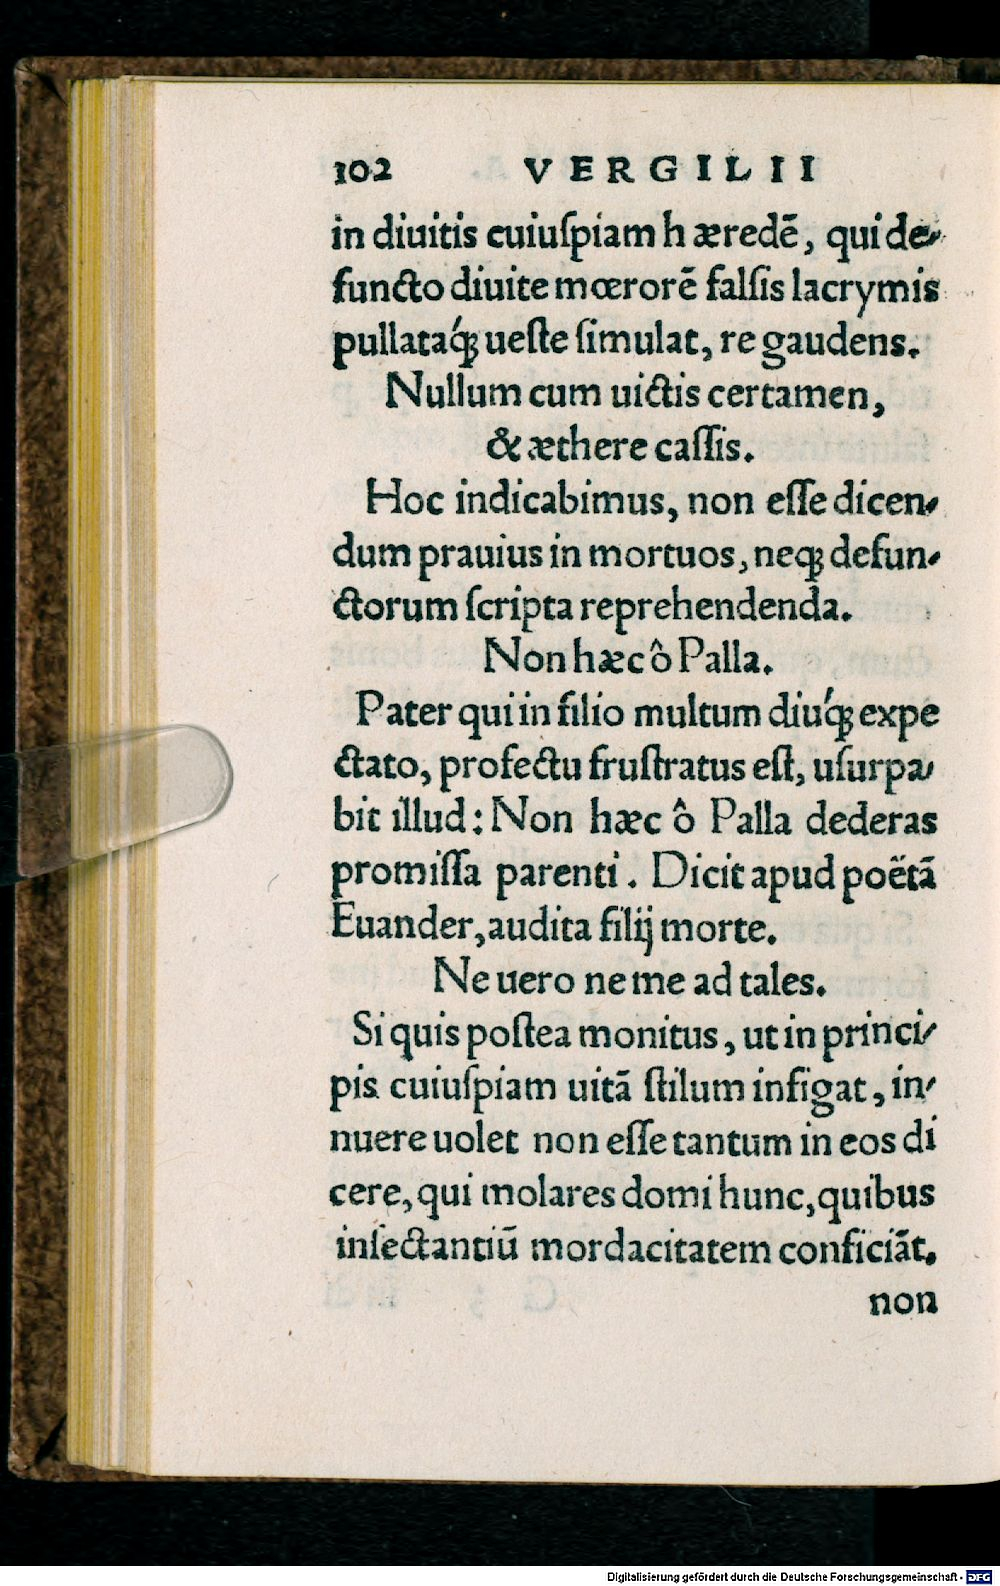 102 VERGILII
in diuitis cuiuſpiam hæredē, qui de-
functo diuite mœrorē falſis lacrymis
pullataq́; ueſte ſimulat, re gaudens.
Nullum cum uictis certamen,
& æthere caſſis.
Hoc indicabimus, non eſſe dicen-
dum prauius in mortuos, neq; defun-
ctorum ſcripta reprehendenda.
Non hæc ô Palla.
Pater qui in filio multum diuq́; expe
ctato, profectu fruſtratus eſt, uſurpa-
bit illud: Non hæc ô Palla dederas
promiſſa parenti. Dicit apud poëtā
Euander, audita filij morte.
Ne uero ne me ad tales.
Si quis poſtea monitus, ut in princi-
pis cuiuſpiam uitā ſtilum infigat, in-
nuere uolet non eſſe tantum in eos di
cere, qui molares domi hunc, quibus
inſectantiū mordacitatem conficiāt.
non
Digitalisierung gefördert durch die Deutsche Forschungsgemeinschaft - DFG